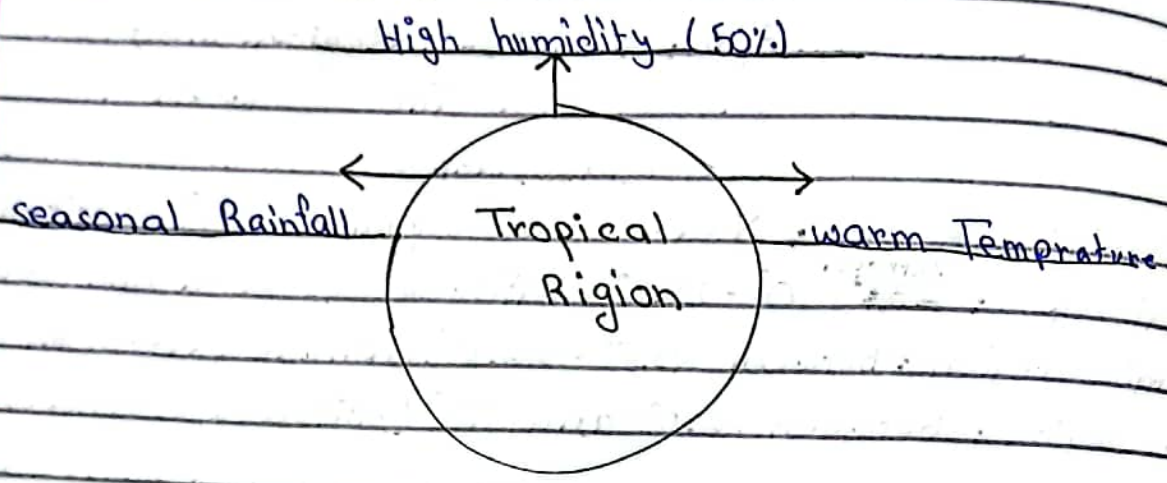 High humidity (50%)
seasonal Rainfall
Tropical
Rigion
warm Temprature